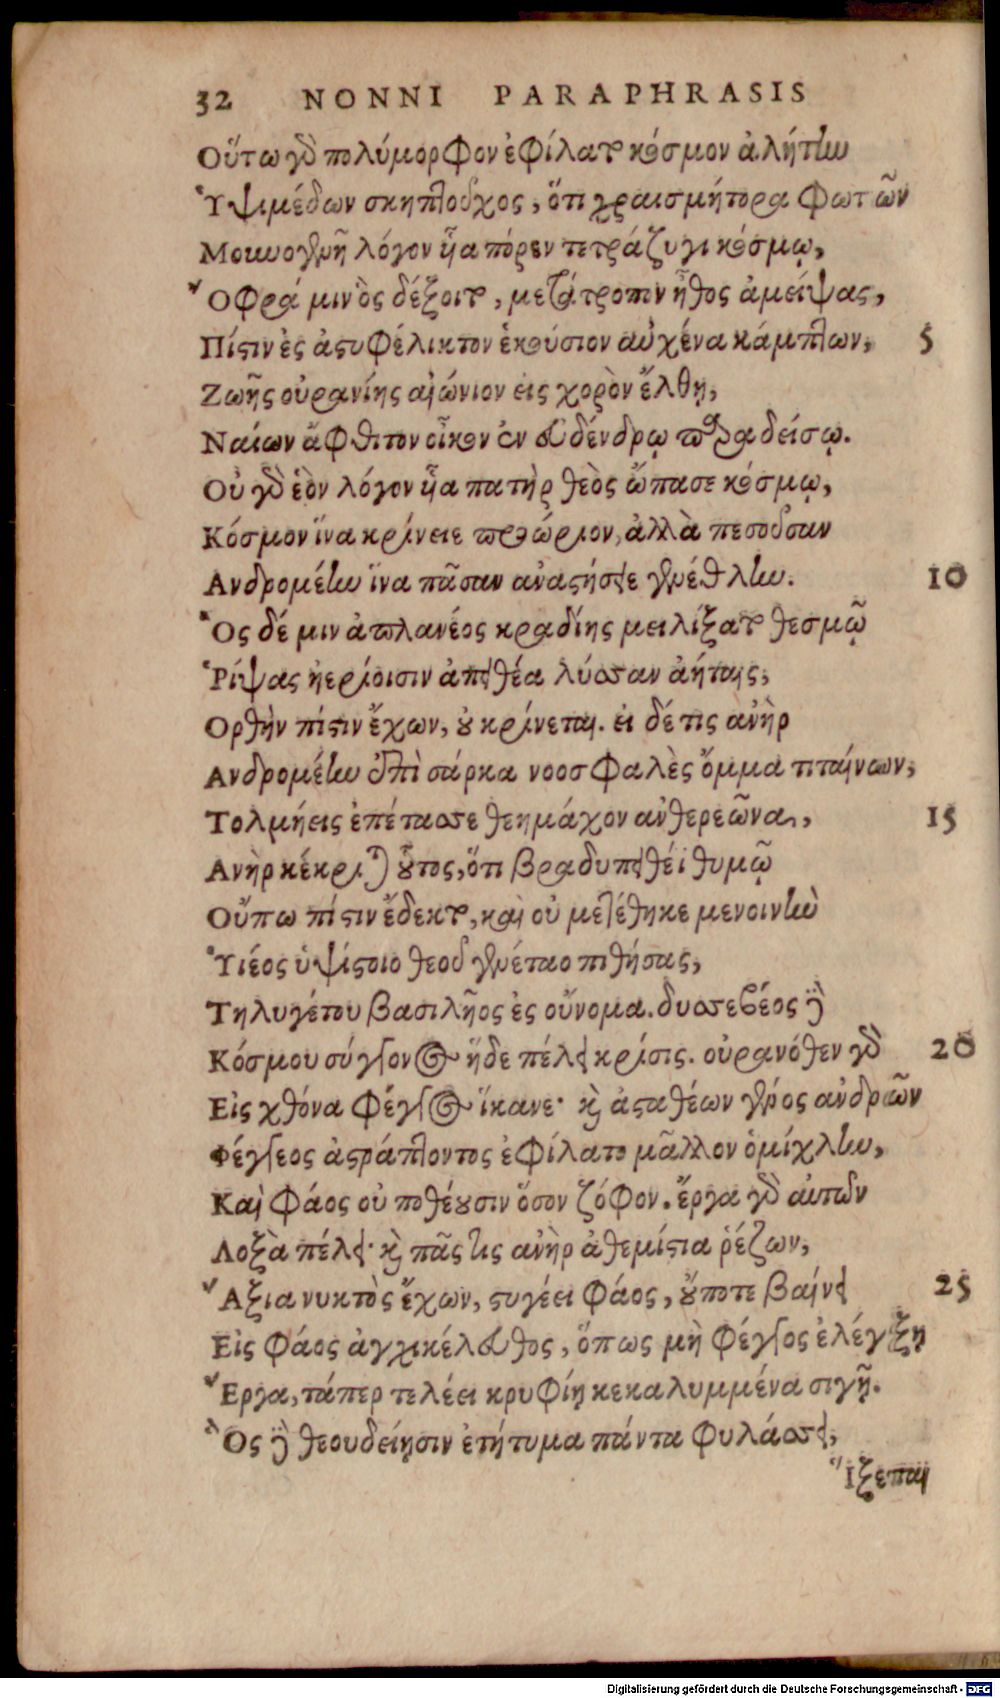 32 NONNI PARAPHRASIS
Οὕτω γὰρ πολύμορφον ἐφίλατο κόσμον ἀλήτην
Ὑψιμέδων σκηπτοῦχος, ὅτι χραισμήτορα φωτῶν
Μουνογενῆ λόγον ἧα πόρεν τετράζυγι κόσμῳ,
Ὄφρά μιν ὃς δέξοιτο, μετάτροπον ἦθος ἀμείψας,
Πίστιν ἐς ἀστυφέλικτον ἑκούσιον αὐχένα κάμπτων, 5
Ζωῆς οὐρανίης αἰώνιον εἰς χορὸν ἔλθῃ,
Ναίων ἄφθιτον οἶκον ἐν εὐδένδρῳ παραδείσῳ.
Οὐ γὰρ ἑὸν λόγον ἧα πατὴρ θεὸς ὤπασε κόσμῳ,
Κόσμον ἵνα κρίνειε προώριον, ἀλλὰ πεσοῦσαν
Ανδρομέην ἵνα πᾶσαν ἀναστήσειε γενέθλην. 10
Ὃς δέ μιν ἀπλανέος κραδίης μειλίξατο θεσμῷ
Ῥίψας ἠερίοισιν ἀπειθέα λύσσαν ἀήταις,
Ορθὴν πίστιν ἔχων, οὐ κρίνεται. εἰ δέ τις ἀνὴρ
Ανδρομέην ἐπὶ σάρκα νοοσφαλὲς ὄμμα τιταίνων,
Τολμήεις ἐπέτασσε θεημάχον ἀνθερεῶνα, 15
Ανὴρ κέκριται οὗτος, ὅτι βραδυπειθέϊ θυμῷ
Οὔπω πίστιν ἔδεκτο, καὶ οὐ μετέθηκε μενοινὴν
Ὑιέος ὑψίστοιο θεοῦ γενέταο πιθήσας,
Τηλυγέτου βασιλῆος ἐς οὔνομα. δυσσεβέος δὲ
Κόσμου σύγγονος ἥδε πέλει κρίσις. οὐρανόθεν γὰρ 20
Εἰς χθόνα φέγγος ἵκανε· καὶ ἀσταθέων γένος ἀνδρῶν
Φέγγεος ἀστράπτοντος ἐφίλατο μᾶλλον ὁμίχλην,
Καὶ φάος οὐ ποθέουσιν ὅσον ζόφον. ἔργα γὰρ αὐτῶν
Λοξὰ πέλει· καὶ πᾶς τις ἀνὴρ ἀθεμίστια ῥέζων,
Ἄξια νυκτὸς ἔχων, στυγέει φάος, οὔποτε βαίνει 25
Εἰς φάος ἀγχικέλευθος, ὅπως μὴ φέγγος ἐλέγξῃ
Ἔργα, τάπερ τελέει κρυφίῃ κεκαλυμμένα σιγῇ.
Ὃς δὲ θεουδείῃσιν ἐτήτυμα πάντα φυλάσσει,
Ἵξεται
Digitalisierung gefördert durch die Deutsche Forschungsgemeinschaft - DFG